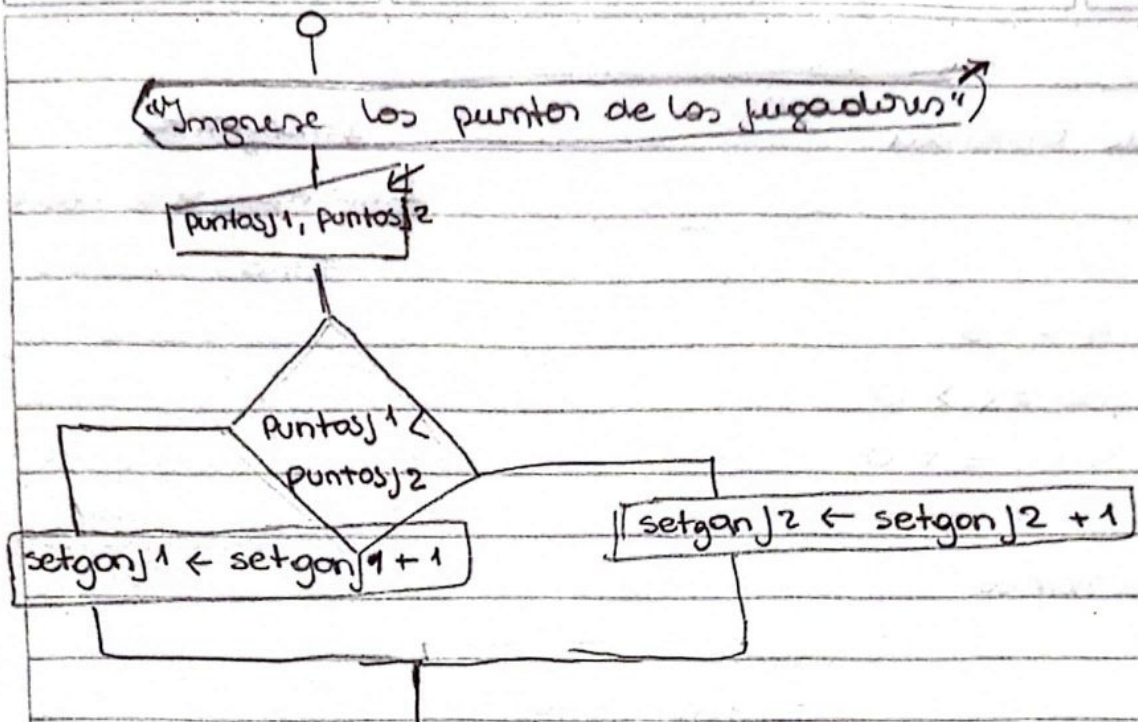 "Ingrese los puntos de los jugadores"
puntosj1, puntosj2
puntosj1 <
puntosj2
setganj1 ← setganj1 + 1
setganj2 ← setganj2 + 1